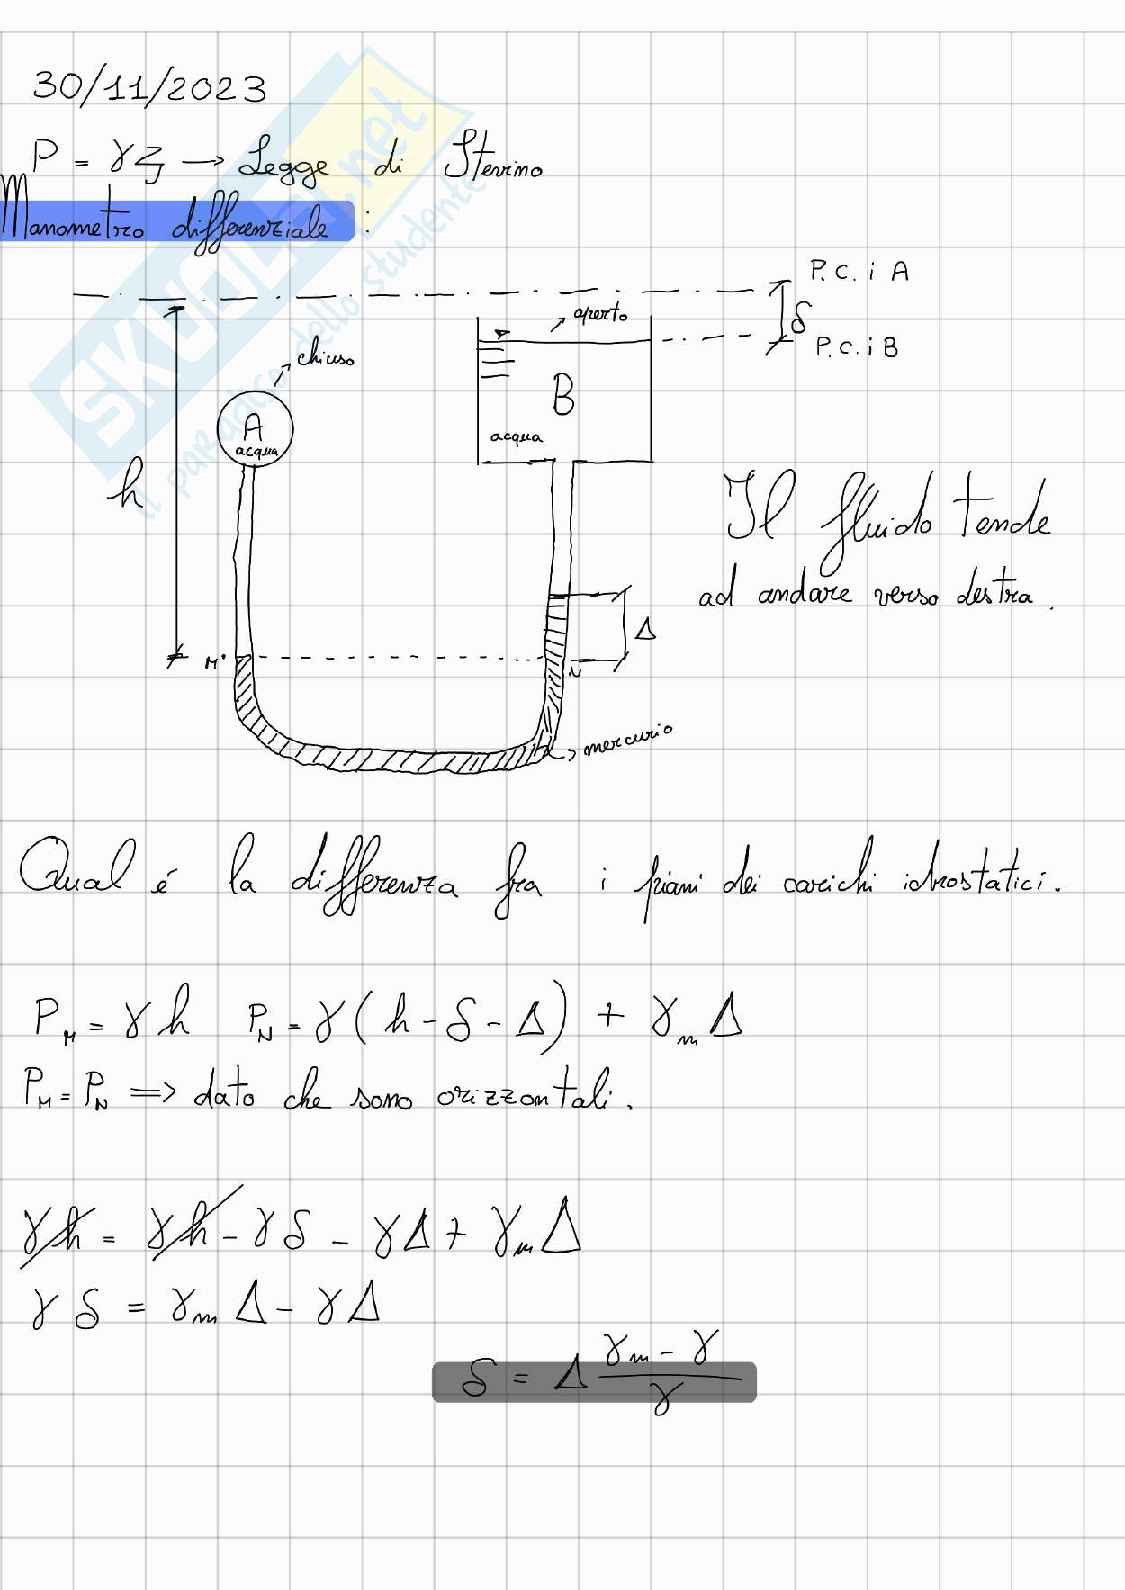 30/11/2023
P = γz → Legge di Stevino
Manometro differenziale :
P.C. i A
aperto
δ
P.C. i B
chiuso
A
acqua
B
acqua
h
Il fluido tende
ad andare verso destra.
Δ
M
N
mercurio
Qual é la differenza fra i piani dei carichi idrostatici.
P_M = γh P_N = γ(h - δ - Δ) + γ_m Δ
P_M = P_N => dato che sono orizzontali.
γh = γh - γδ - γΔ + γ_m Δ
γδ = γ_m Δ - γΔ
δ = Δ (γ_m - γ) / γ
SKUOLA.net
il paradiso dello studente